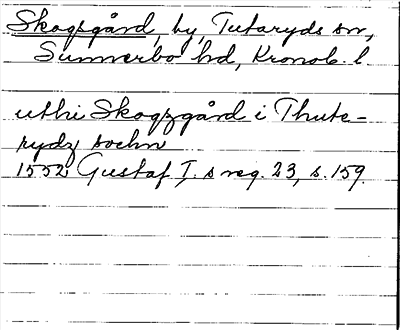 Skogsgård, by, Tutaryds sn,
Sunnerbo hd, Kronob. l.
uthi Skogzgård i Thute-
rydz sochn
1552 Gustaf I,s reg. 23, s. 159.